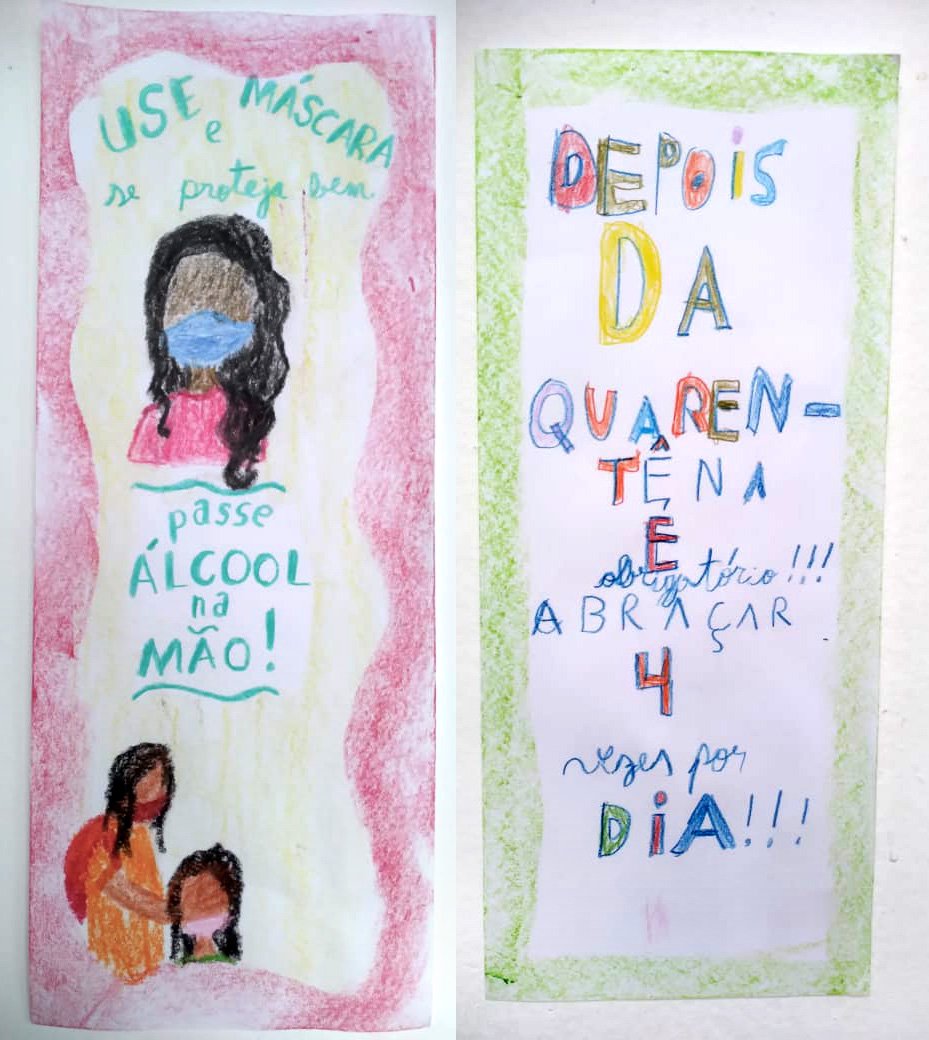 USE e MÁSCARA
se proteja bem
passe
ÁLCOOL
na
MÃO!
DEPOIS
DA
QUAREN-
TÊNA
É
obrigatório!!!
ABRAÇAR
4
vezes por
DIA!!!